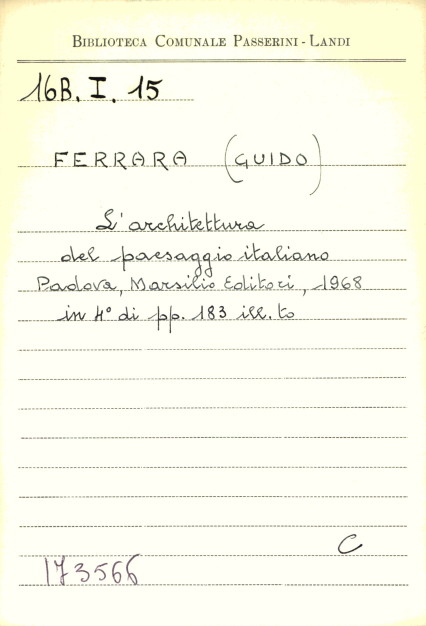 BIBLIOTECA COMUNALE PASSERINI - LANDI
16B. I. 15
FERRARA (GUIDO)
L'architettura
del paesaggio italiano
Padova, Marsilio Editori, 1968
in 4° di pp. 183 ill.to
C
173566